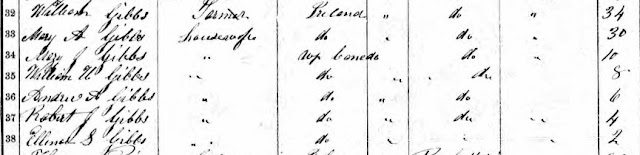 32 William Gibbs Farmer Ireland " do " 34
33 Mary A Gibbs housewife do " do " 30
34 Mary J Gibbs " Up Canada do " 10
35 William H Gibbs " do " do 8
36 Andrew A Gibbs " do " do 6
37 Robert J Gibbs " do " do " 4
38 Ellenor S Gibbs " do " " " 2